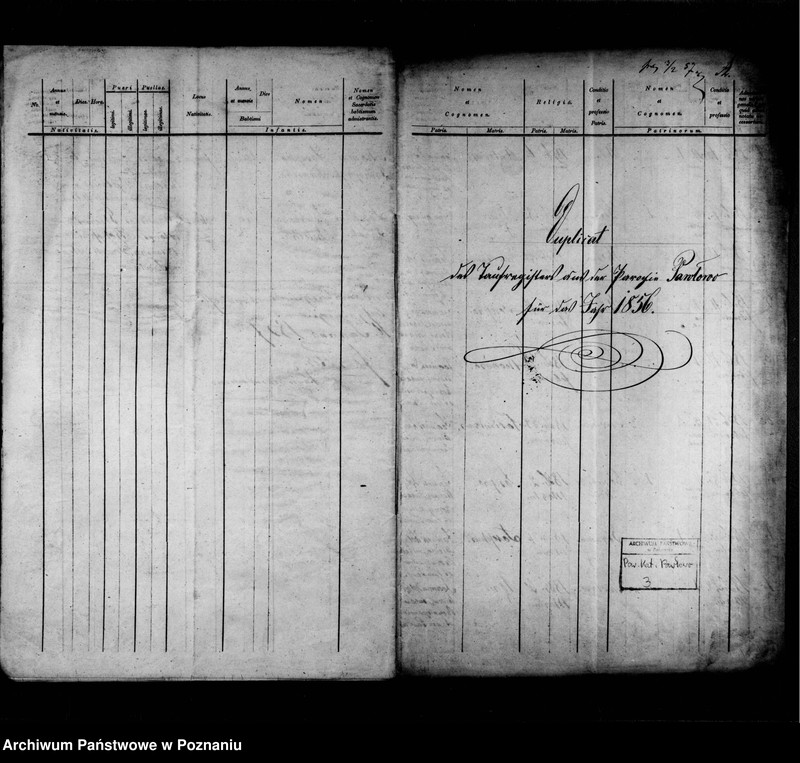 Nr.
Annus et mensis
Dies
Hora
Nativitatis.
Pueri
legitimi.
illegitimi.
Puellae.
legitimae.
illegitimae.
Locus Nativitatis.
Annus et mensis
Dies
Babtismi
Nomen
Infantis.
Nomen et Cognomen Sacerdotis babtismum administrantis.
Nomen et Cognomen.
Patris.
Matris.
Religio.
Patris.
Matris.
Conditio et professio Patris.
Nomen et Cognomen.
Conditio et professio
Patrinorum.
Duplicat
des Taufregisters aus der Parochie Pawłowo
für das Jahr 1856.
ARCHIWUM PAŃSTWOWE
w Poznaniu
Par. Kat. Pawłowo
3
Archiwum Państwowe w Poznaniu